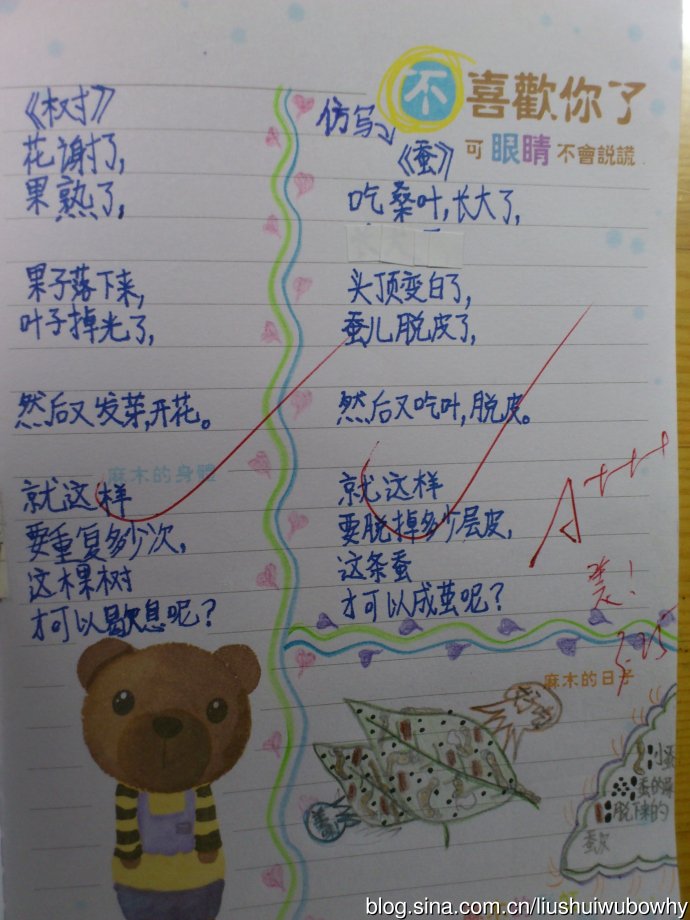 不喜歡你了
可眼睛不會説謊
《树》
花谢了,
果熟了,
果子落下来,
叶子掉光了,
然后又发芽,开花。
麻木的身體
就这样
要重复多少次,
这棵树
才可以歇息呢?
仿写
《蚕》
吃桑叶,长大了,
头顶变白了,
蚕儿脱皮了,
然后又吃叶,脱皮。
就这样
要脱掉多少层皮,
这条蚕
才可以成茧呢?
A+++
3.25
麻木的日子
好吃
小蚕
蚕的屎
脱下来的
blog.sina.com.cn/liushuiwubowhy